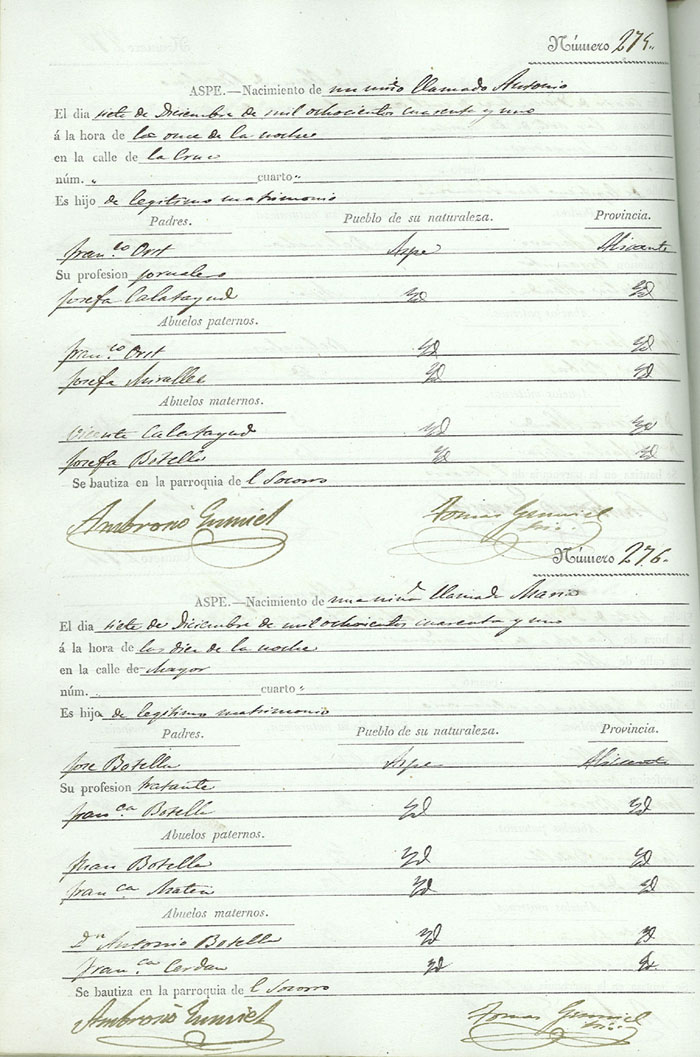 Número 275.
ASPE.—Nacimiento de un niño llamado Antonio
El dia siete de Diciembre de mil ochocientos cuarenta y uno
á la hora de la once de la noche
en la calle de la Cruz
núm. " cuarto "
Es hijo de legitimo matrimonio
Padres. Pueblo de su naturaleza. Provincia.
Fran.co Aspe Alicante
Su profesion jornalero
Josefa Calatayud Yd Yd
Abuelos paternos.
Fran.co Yd Yd
Josefa Miralles Yd Yd
Abuelos maternos.
Vicente Calatayud Yd Yd
Josefa Botella Yd Yd
Se bautiza en la parroquia de l Socorro
Ambrosio Tomas
Número 276.
ASPE.—Nacimiento de una niña llamada Maria
El dia siete de Diciembre de mil ochocientos cuarenta y uno
á la hora de las diez de la noche
en la calle de Mayor
núm. cuarto "
Es hija de legitimo matrimonio
Padres. Pueblo de su naturaleza. Provincia.
Jose Botella Aspe Alicante
Su profesion tratante
Fran.ca Botella Yd Yd
Abuelos paternos.
Juan Botella Yd Yd
Fran.ca Yd Yd
Abuelos maternos.
Dn Antonio Botella Yd Yd
Fran.ca Cerdan Yd Yd
Se bautiza en la parroquia de l Socorro
Ambrosio Tomas